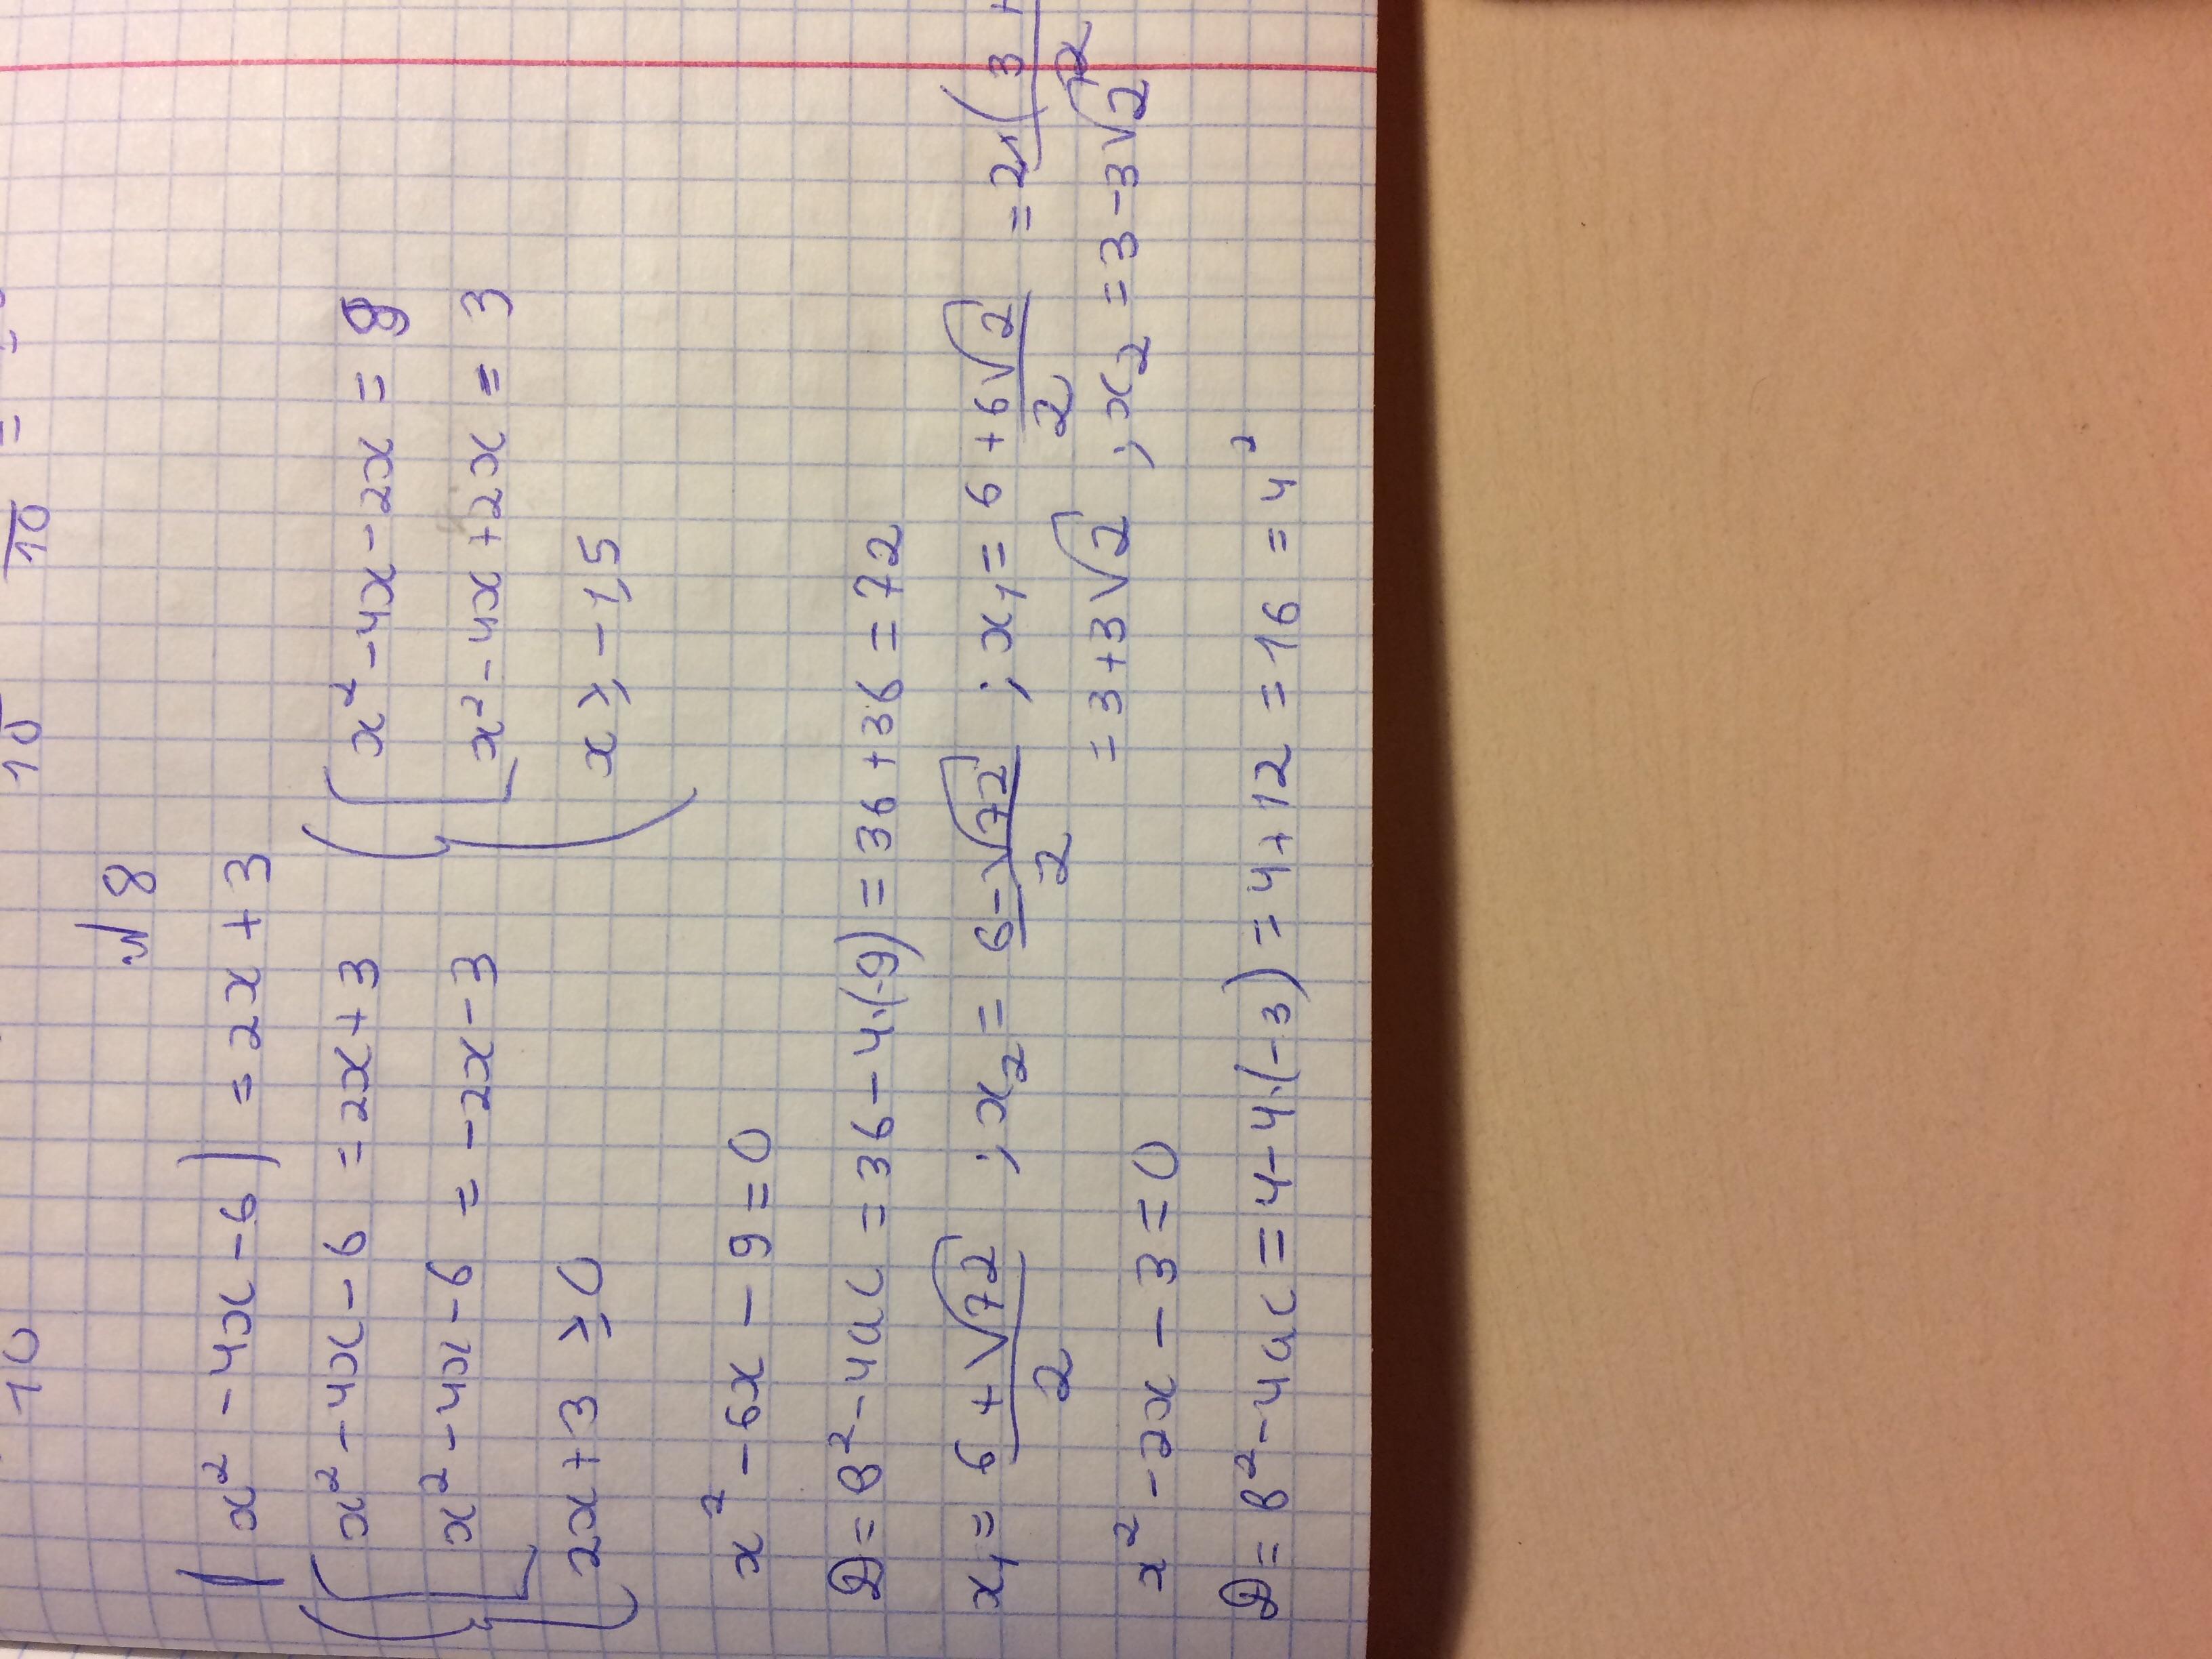 10 10 10 =
№ 8
|x² - 4x - 6| = 2x + 3
x² - 4x - 6 = 2x + 3 x² - 4x - 2x = 9
x² - 4x - 6 = -2x - 3 x² - 4x + 2x = 3
2x + 3 ≥ 0 x ≥ -1,5
x² - 6x - 9 = 0
D = b² - 4ac = 36 - 4·(-9) = 36 + 36 = 72
x₁ = (6 + √72)/2 ; x₂ = (6 - √72)/2 ; x₁ = (6 + 6√2)/2 = 2·(3
= 3 + 3√2 ; x₂ = 3 - 3√2
x² - 2x - 3 = 0
D = b² - 4ac = 4 - 4·(-3) = 4 + 12 = 16 = 4²